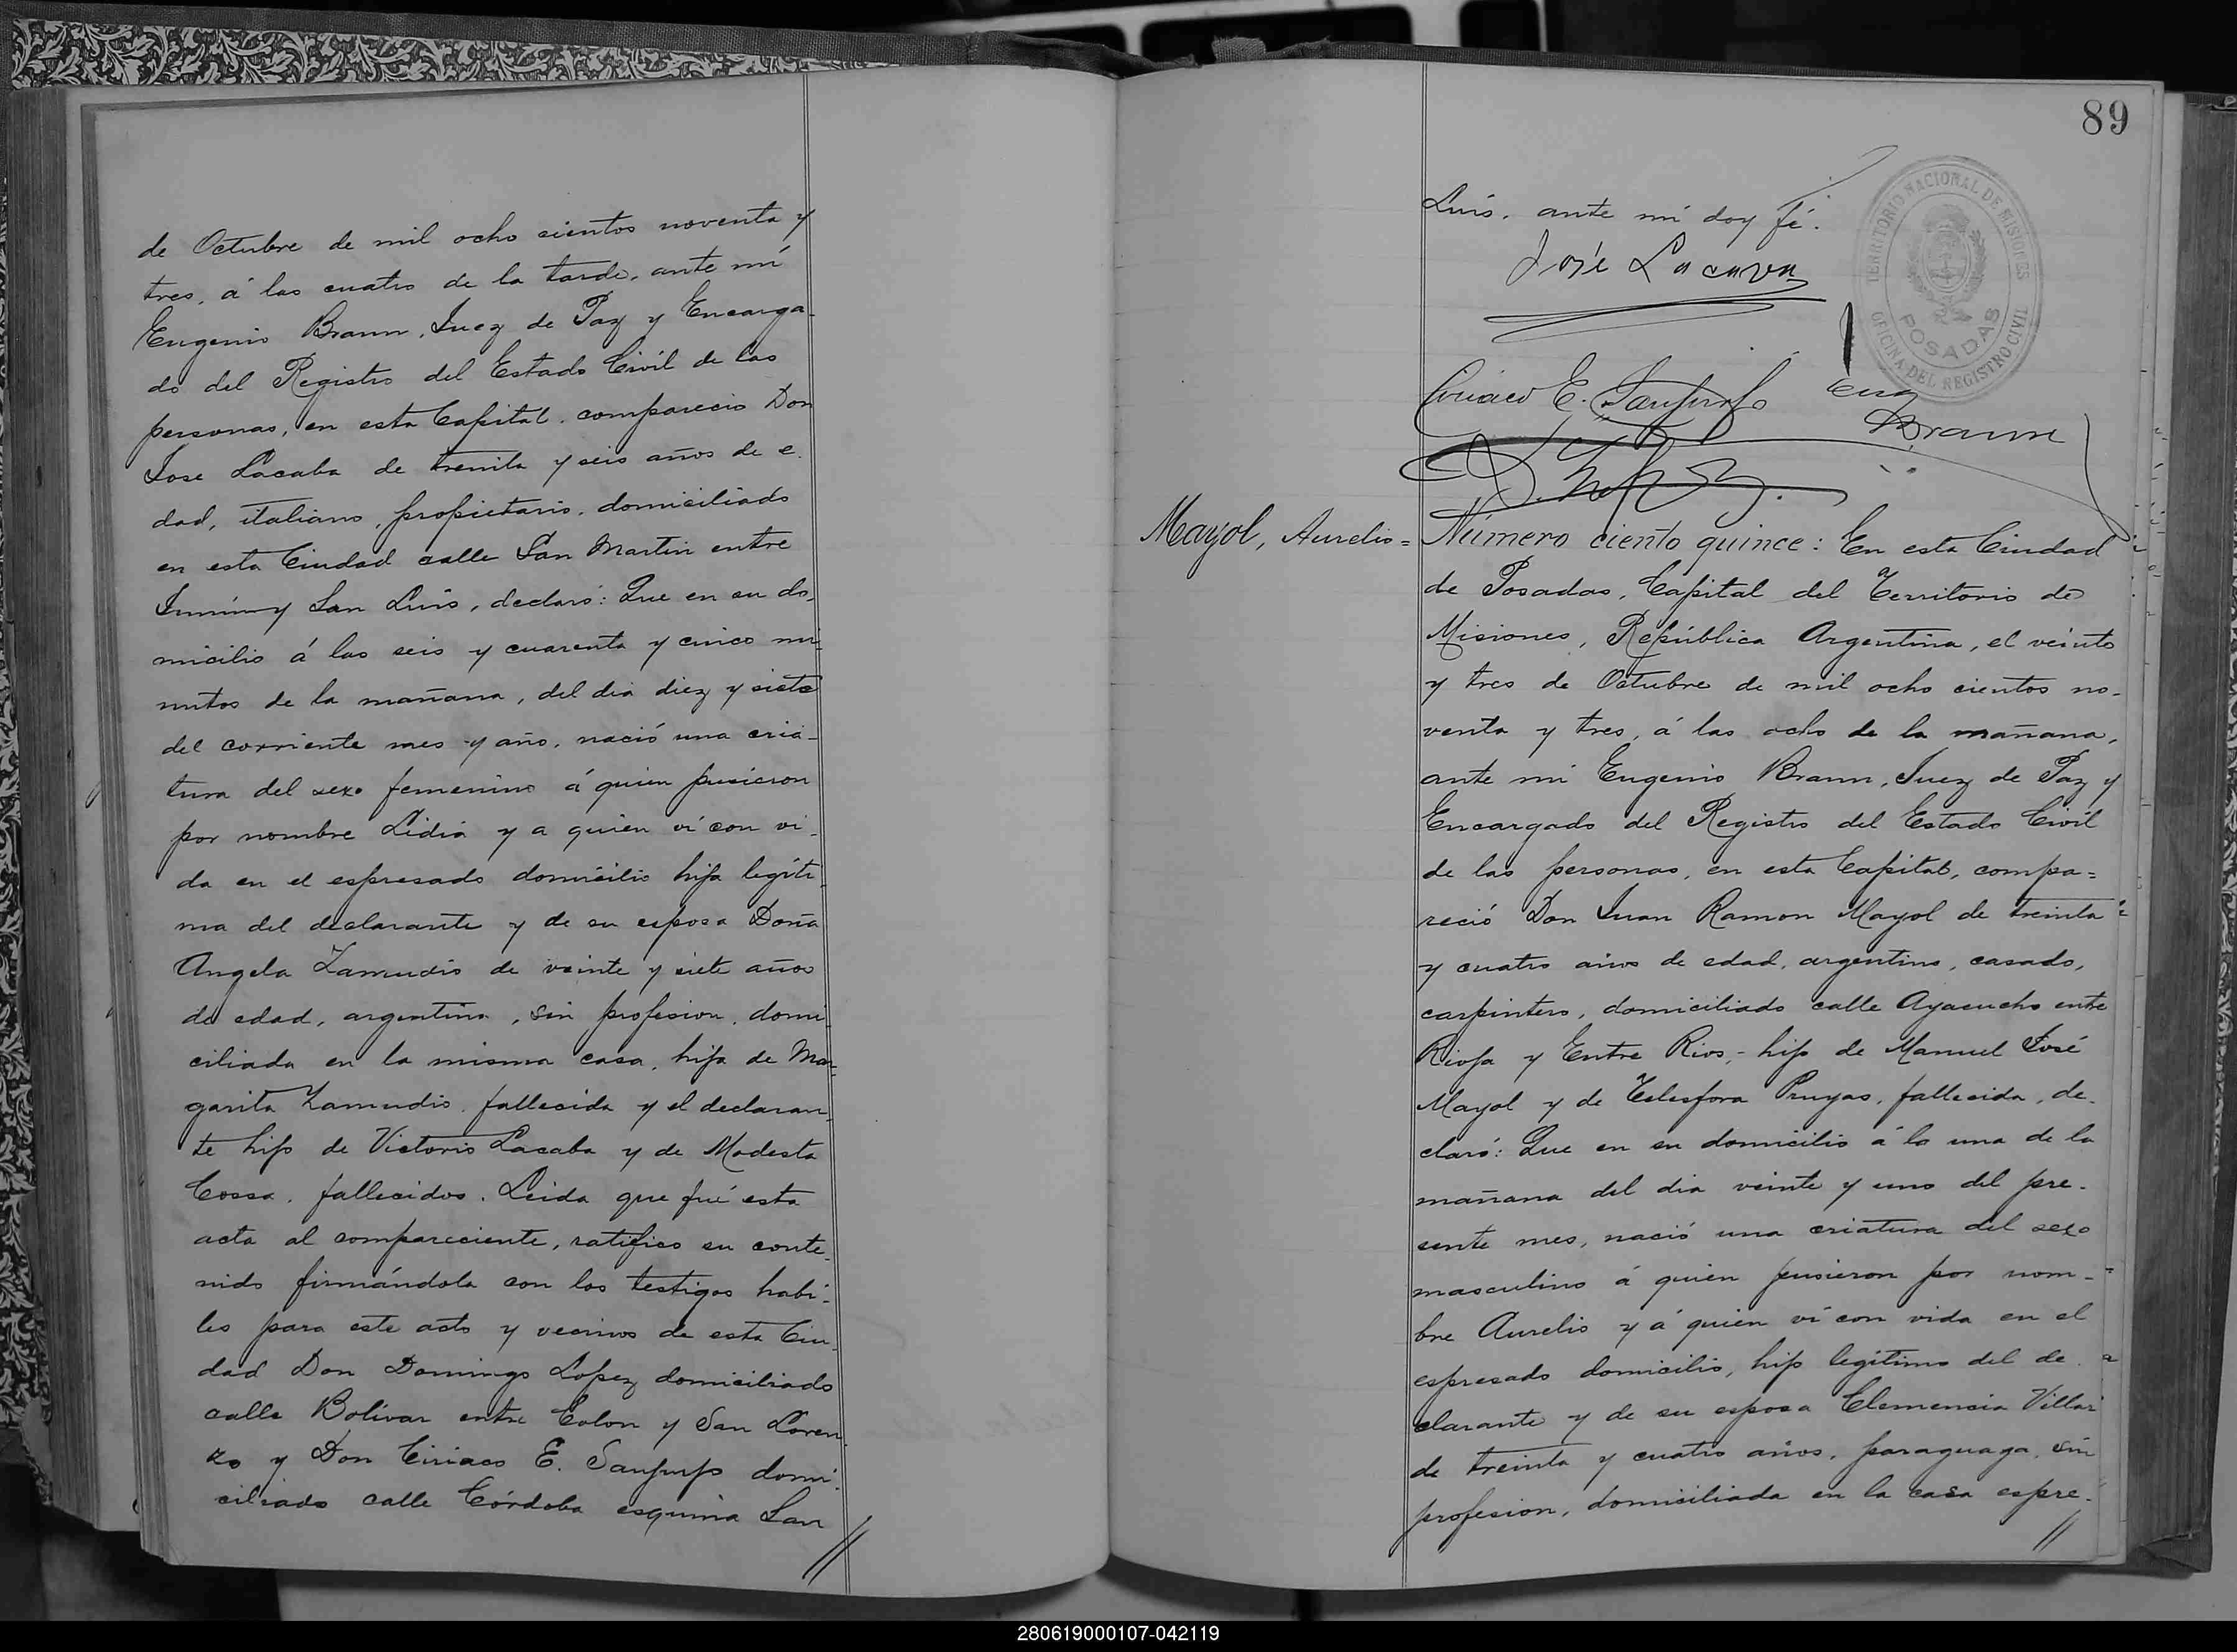 de Octubre de mil ocho cientos noventa y
tres, á las cuatro de la tarde, ante mí
Eugenio Braun, Juez de Paz y Encarga-
do del Registro del Estado Civil de las
personas, en esta Capital, comparecio Don
Jose Lacaba de treinta y seis años de e-
dad, italiano, propietario, domiciliado
en esta Ciudad calle San Martin entre
Junín y San Luis, declaró: Que en su do-
micilio á las seis y cuarenta y cinco mi-
nutos de la mañana, del dia diez y siete
del corriente mes y año, nació una cria-
tura del sexo femenino á quien pusieron
por nombre Lidia y a quien ví con vi-
da en el espresado domicilio hija legíti-
ma del declarante y de su esposa Doña
Angela Zamudio de veinte y siete años
de edad, argentina, sin profesion, domi-
ciliada en la misma casa, hija de Mar-
garita Zamudio, fallecida y el declaran-
te hijo de Victorio Lacaba y de Modesta
Cossa, fallecidos. Leida que fué esta
acta al compareciente, ratifico su conte-
nido firmándola con los testigos habi-
les para este acto y vecinos de esta Ciu-
dad Don Domingo Lopez domiciliado
calle Bolívar entre Colon y San Loren-
zo y Don Ciriaco E. Sanjurjo domi-
ciliado calle Córdoba esquina San
//
89
Luis. ante mí doy fé.
José Lacava
TERRITORIO NACIONAL DE MISIONES
POSADAS
OFICINA DEL REGISTRO CIVIL
Ciriaco E. Sanjurjo
Eug Braun
Mayol, Aurelio =
Número ciento quince: En esta Ciudad
de Posadas, Capital del Territorio de
Misiones, República Argentina, el veinte
y tres de Octubre de mil ocho cientos no-
venta y tres, á las ocho de la mañana,
ante mi Eugenio Braun, Juez de Paz y
Encargado del Registro del Estado Civil
de las personas, en esta Capital, compa=
reció Don Juan Ramon Mayol de treinta
y cuatro años de edad, argentino, casado,
carpintero, domiciliado calle Ayacucho entre
Rioja y Entre Rios,- hijo de Manuel José
Mayol y de Telesfora Pruyas, fallecida, de-
claró: Que en su domicilio á la una de la
mañana del dia veinte y uno del pre-
sente mes, nació una criatura del sexo
masculino á quien pusieron por nom-
bre Aurelio y á quien ví con vida en el
espresado domicilio, hijo legítimo del de-
clarante y de su esposa Clemencia Villar
de treinta y cuatro años, paraguaya, sin
profesion, domiciliada en la casa espre-
//
280619000107-042119